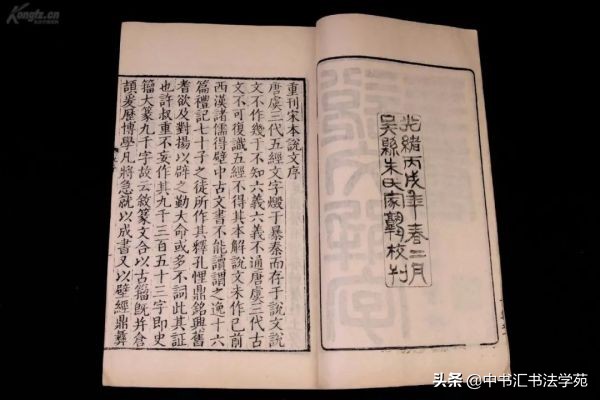 Kongfz.cn
光緒丙戌年春三月
吳縣朱氏家塾校刊
重刊宋本說文序
唐虞三代五經文字燬于暴秦而存于說文說
文不作幾于不知六義六義不通唐虞三代古
文不可復識五經不得其本解說文未作已前
西漢諸儒得壁中古文書不能讀謂之逸十六
篇禮記七十子之徒所作其釋孔悝鼎銘興舊
耆欲及對揚以辟之勤大命或多不詞此其證
也許叔重不妄作其九千三百五十三字即史
籀大篆九千字故云敘篆文合以古籀旣并倉
頡爰歷博學凡將急就以成書又以壁經鼎彝
头条 @中书汇书法学苑